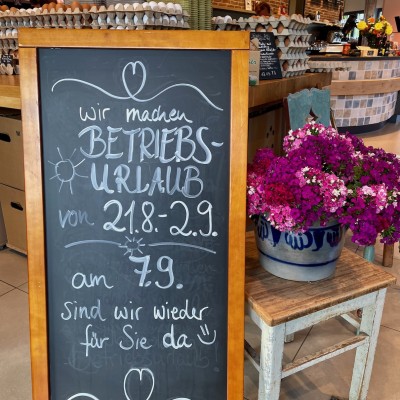 wir machen
BETRIEBS-
URLAUB
von 21.8.-2.9.
am 7.9.
sind wir wieder
für Sie da